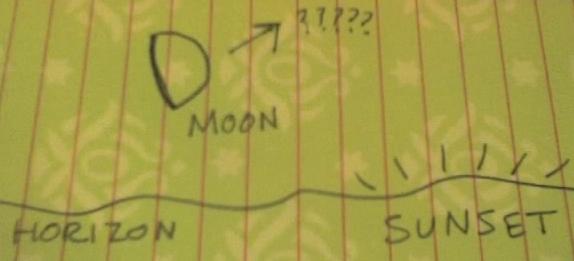 ?????
MOON
HORIZON
SUNSET